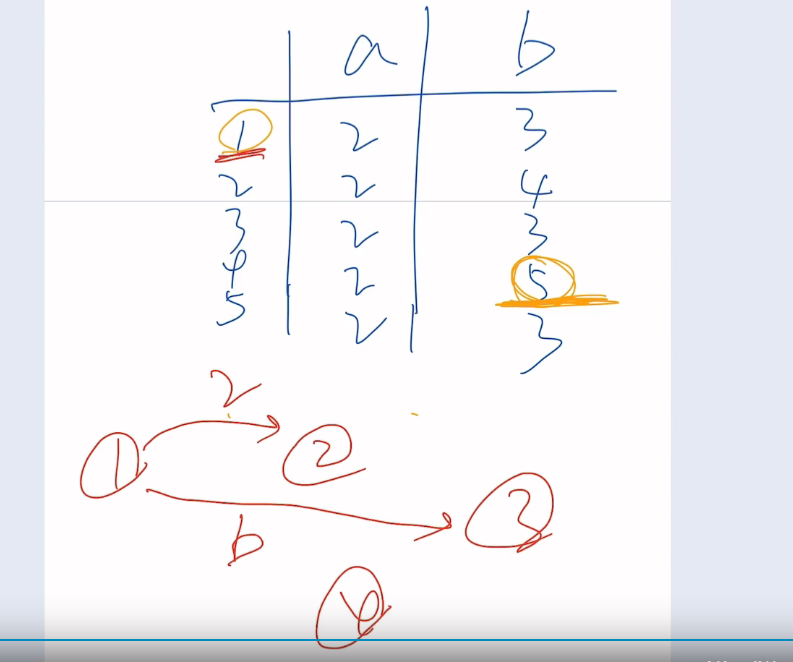 a b
1 2 3
2 2 4
3 2 3
4 2 5
5 2 3
2
1 2
3
b
4